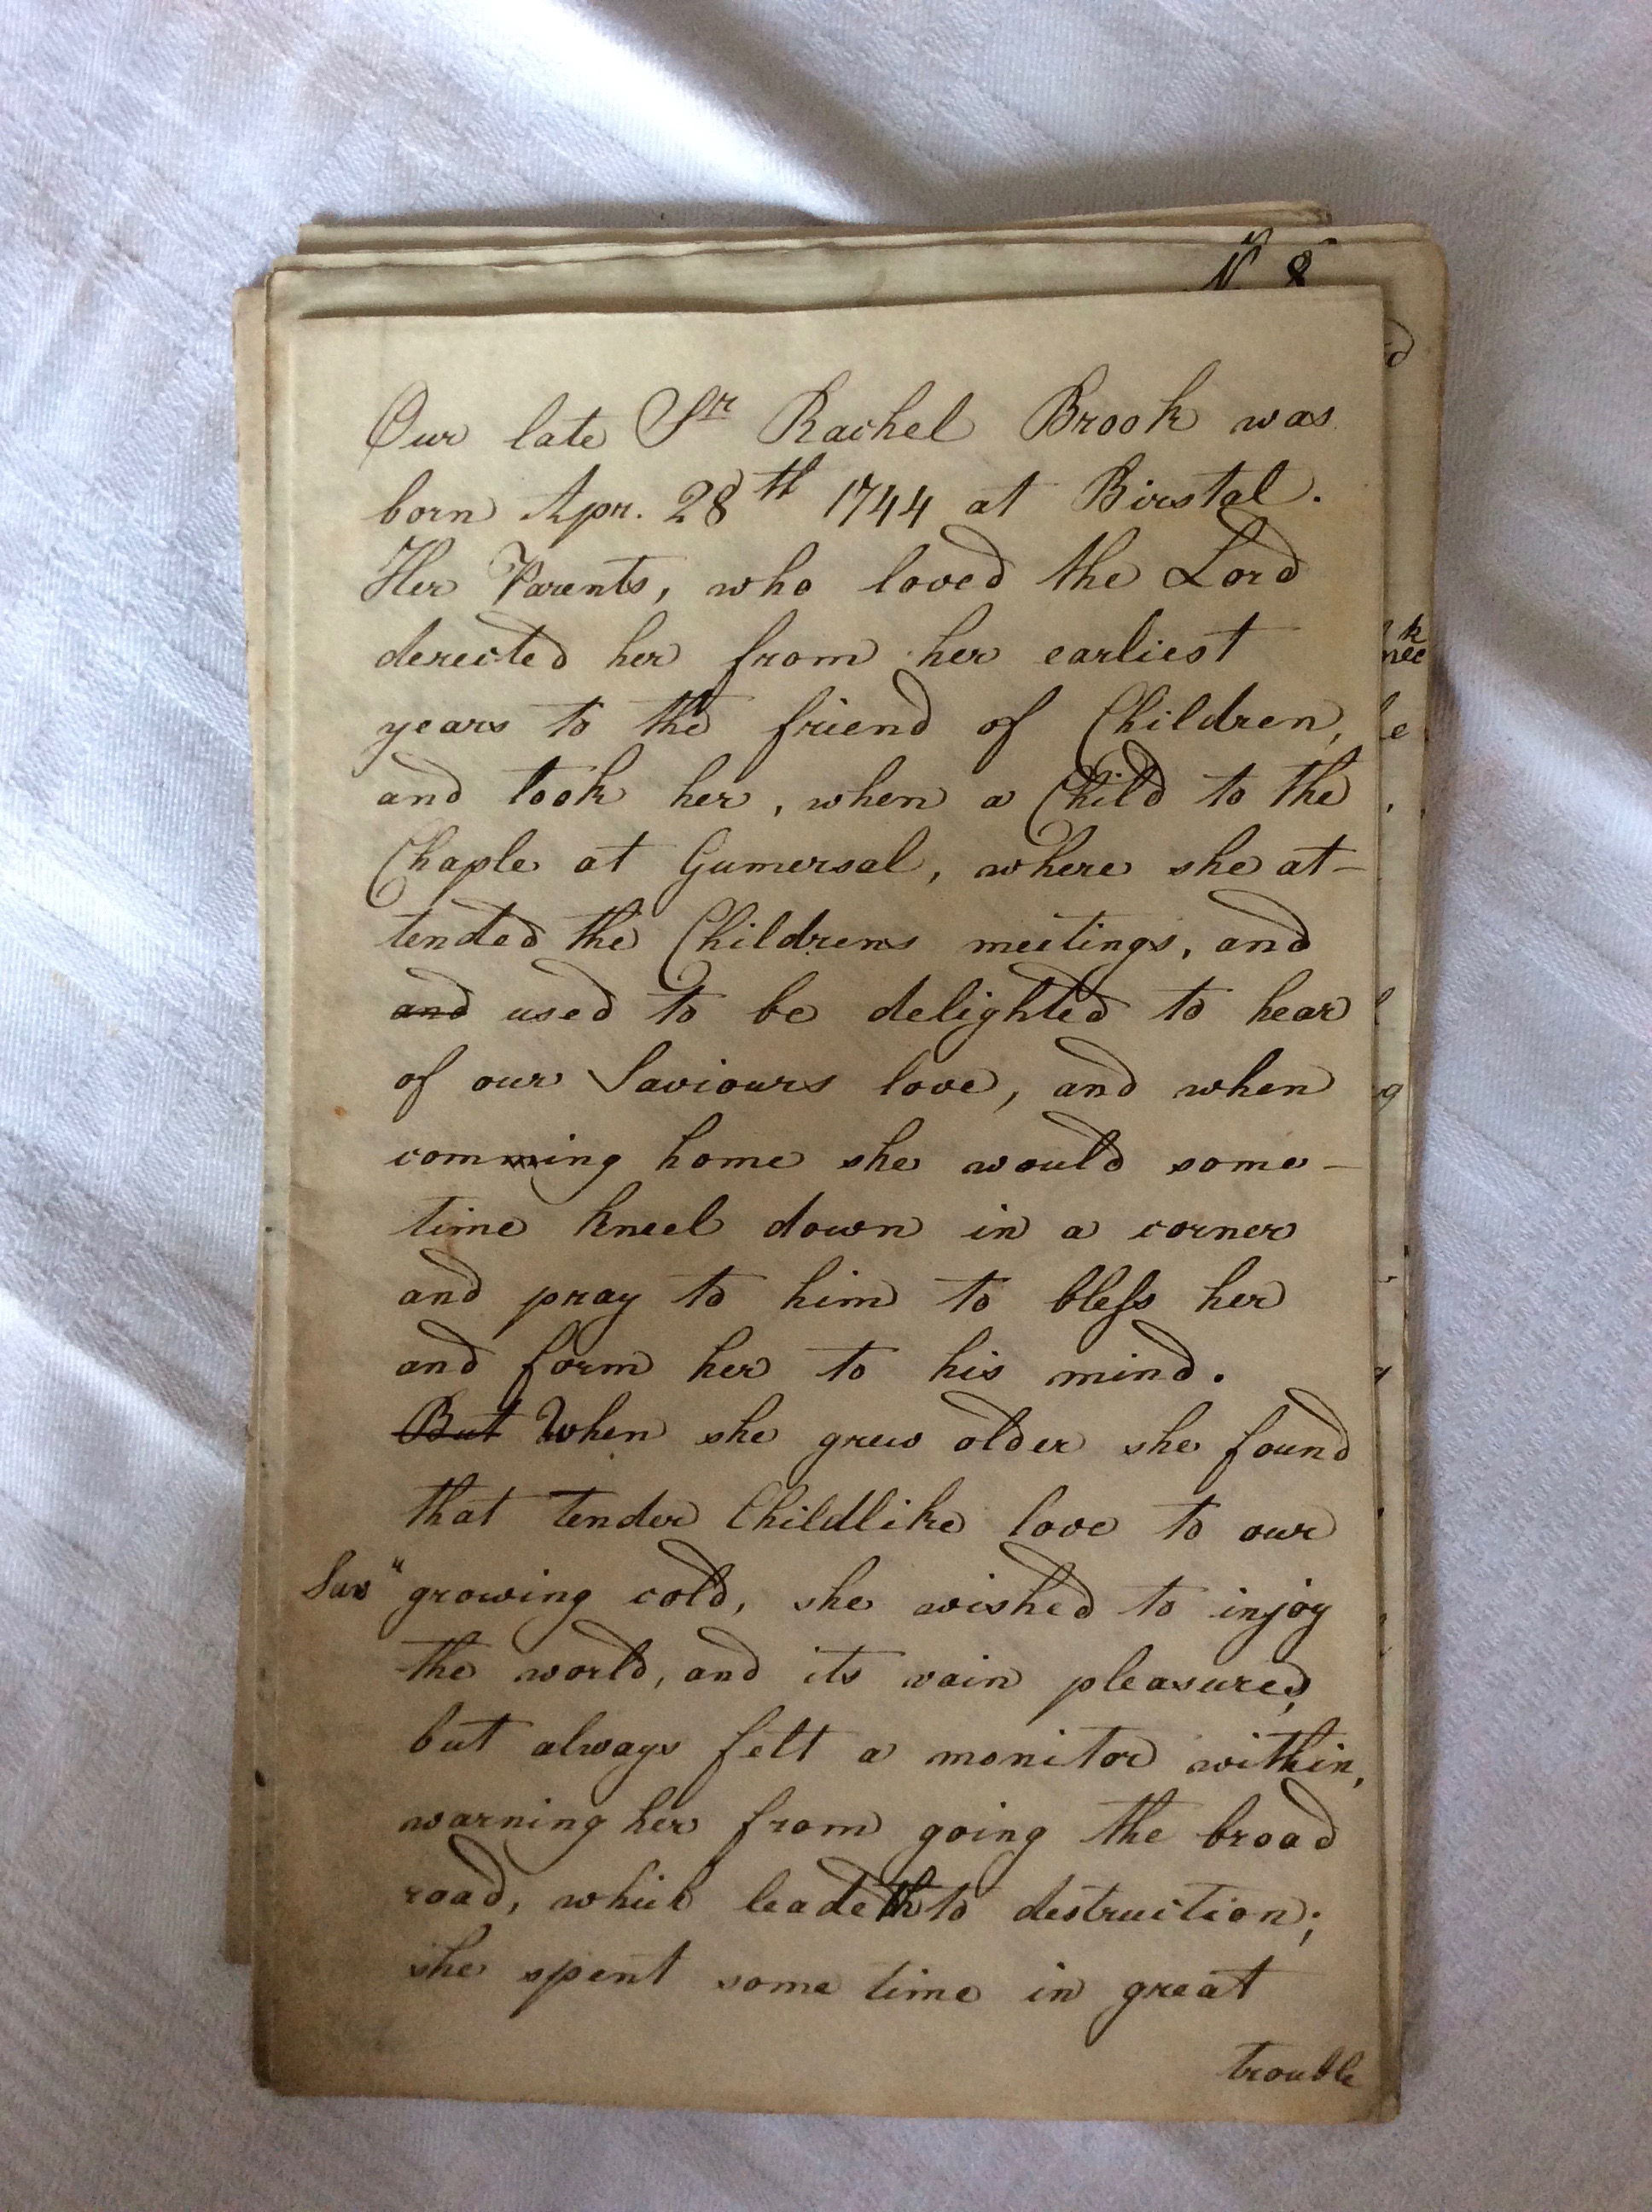 N 8
Our late Sr Rachel Brook was
born Apr. 28th 1744 at Birstal.
Her Parents, who loved the Lord
derected her from her earliest
years to the friend of Children,
and took her, when a Child to the
Chaple at Gumersal, where she at-
tended the Childrens meetings, and
and used to be delighted to hear
of our Saviours love, and when
comming home she would some-
time kneel down in a corner
and pray to him to bless her
and form her to his mind.
But When she grew older she found
that tender Childlike love to our
Savr growing cold, she wished to injoy
the world, and its vain pleasures,
but always felt a monitor within,
warning her from going the broad
road, which leadeth to destruction;
she spent some time in great
trouble